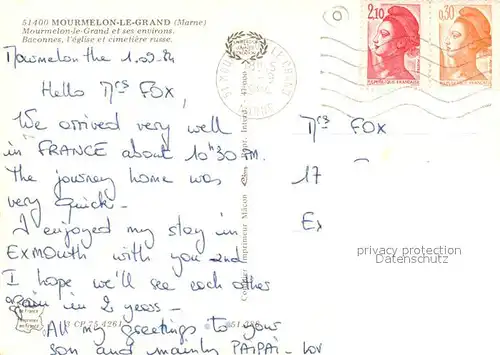 51400 MOURMELON-LE-GRAND (Marne)
Mourmelon-le-Grand et ses environs.
Baconnes, l'église et cimetière russe.
Mourmelon the 1.09.84
Hello Mrs FOX,
We arrived very well
in FRANCE about 10h30 PM.
The journey home was
very quick -
I enjoyed my stay in
EXMOUTH with you and
I hope we'll see each other
again in 2 years -
All my greetings to your
son and mainly PAIPAI -
Combier Imprimeur Mâcon
2,10
0,30
Mrs FOX
17
Ex
privacy protection
Datenschutz
CP 75 4261